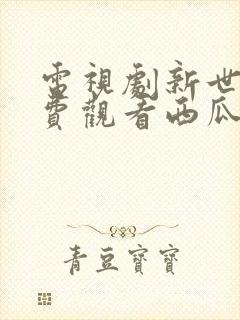 電視劇新世
費觀看西瓜
青豆寶寶